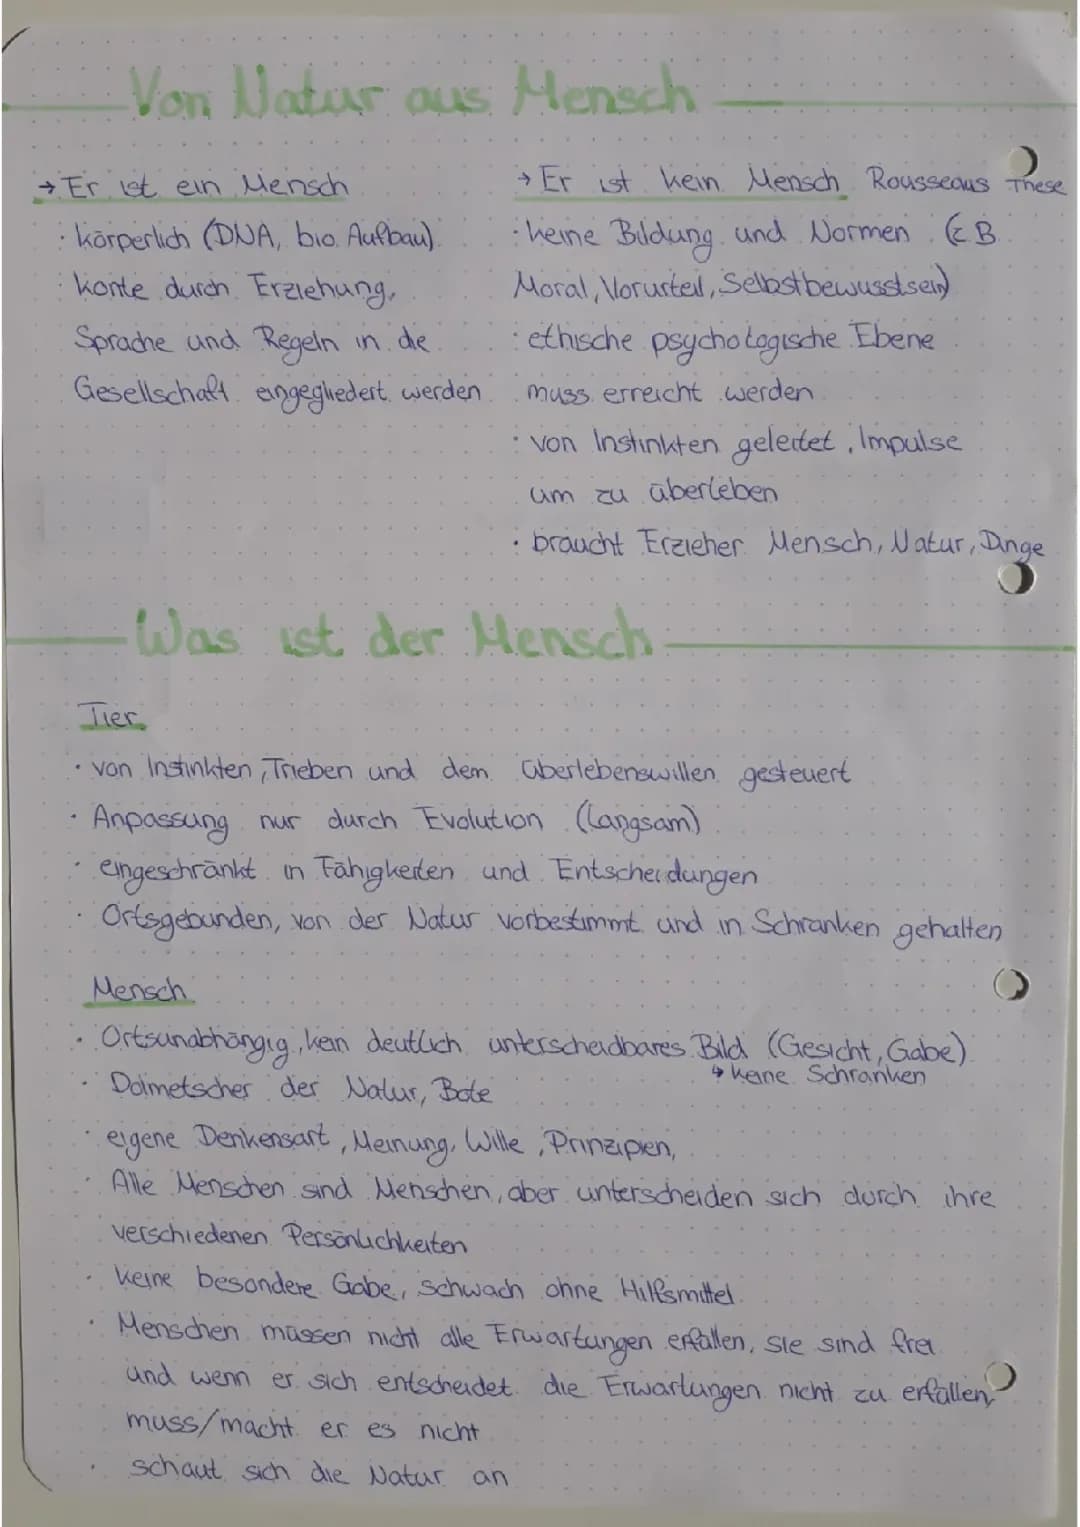 Von Natur aus Mensch
→ Er ist ein Mensch
· körperlich (DNA, bio. Aufbau)
· konte durch Erziehung,
Sprache und Regeln in die
Gesellschaft eingegliedert werden
→ Er ist kein Mensch Rousseaus These
· keine Bildung und Normen (z.B.
Moral, Vorurteil, Selbstbewusstsein)
· ethische psychologische Ebene
muss erreicht werden
· von Instinkten geleitet, Impulse
um zu überleben
· braucht Erzieher Mensch, Natur, Dinge
Was ist der Mensch
Tier
· von Instinkten, Trieben und dem überlebenswillen gesteuert
· Anpassung nur durch Evolution (langsam)
· eingeschränkt in Fähigkeiten und Entscheidungen
· Ortsgebunden, von der Natur vorbestimmt und in Schranken gehalten
Mensch
· Ortsunabhängig, kein deutlich unterscheidbares Bild (Gesicht, Gabe)
↳ keine Schranken
· Dolmetscher der Natur, Bote
· eigene Denkensart, Meinung, Wille, Prinzipien,
· Alle Menschen sind Menschen, aber unterscheiden sich durch ihre
verschiedenen Persönlichkeiten
· keine besondere Gabe, schwach ohne Hilfsmittel
· Menschen müssen nicht alle Erwartungen erfüllen, sie sind frei
und wenn er sich entscheidet die Erwartungen nicht zu erfüllen,
muss/macht er es nicht
· schaut sich die Natur an